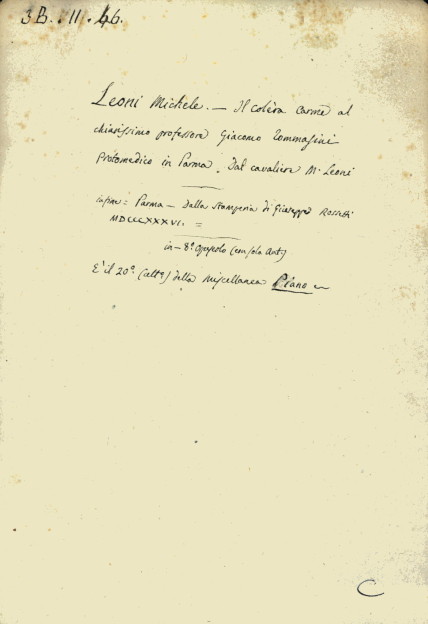 3B. II. 46.
Leoni Michele. — Il colèra Carme al
chiarissimo professore Giacomo Tommasini
Protomedico in Parma. Dal cavaliere M. Leoni
infine = Parma — Dalla Stamperia di Giuseppe Rossetti
MDCCCXXXVI. =
in-8º. Opuscolo
È il 20º. della Miscellanea Piano
C